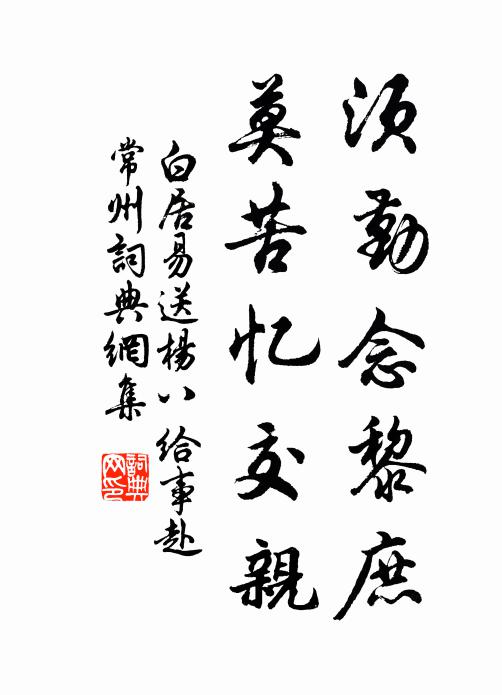 须勤念黎庶
莫苦忆交親
白居易送楊八给事赴
常州詞典網集
詞典
网印